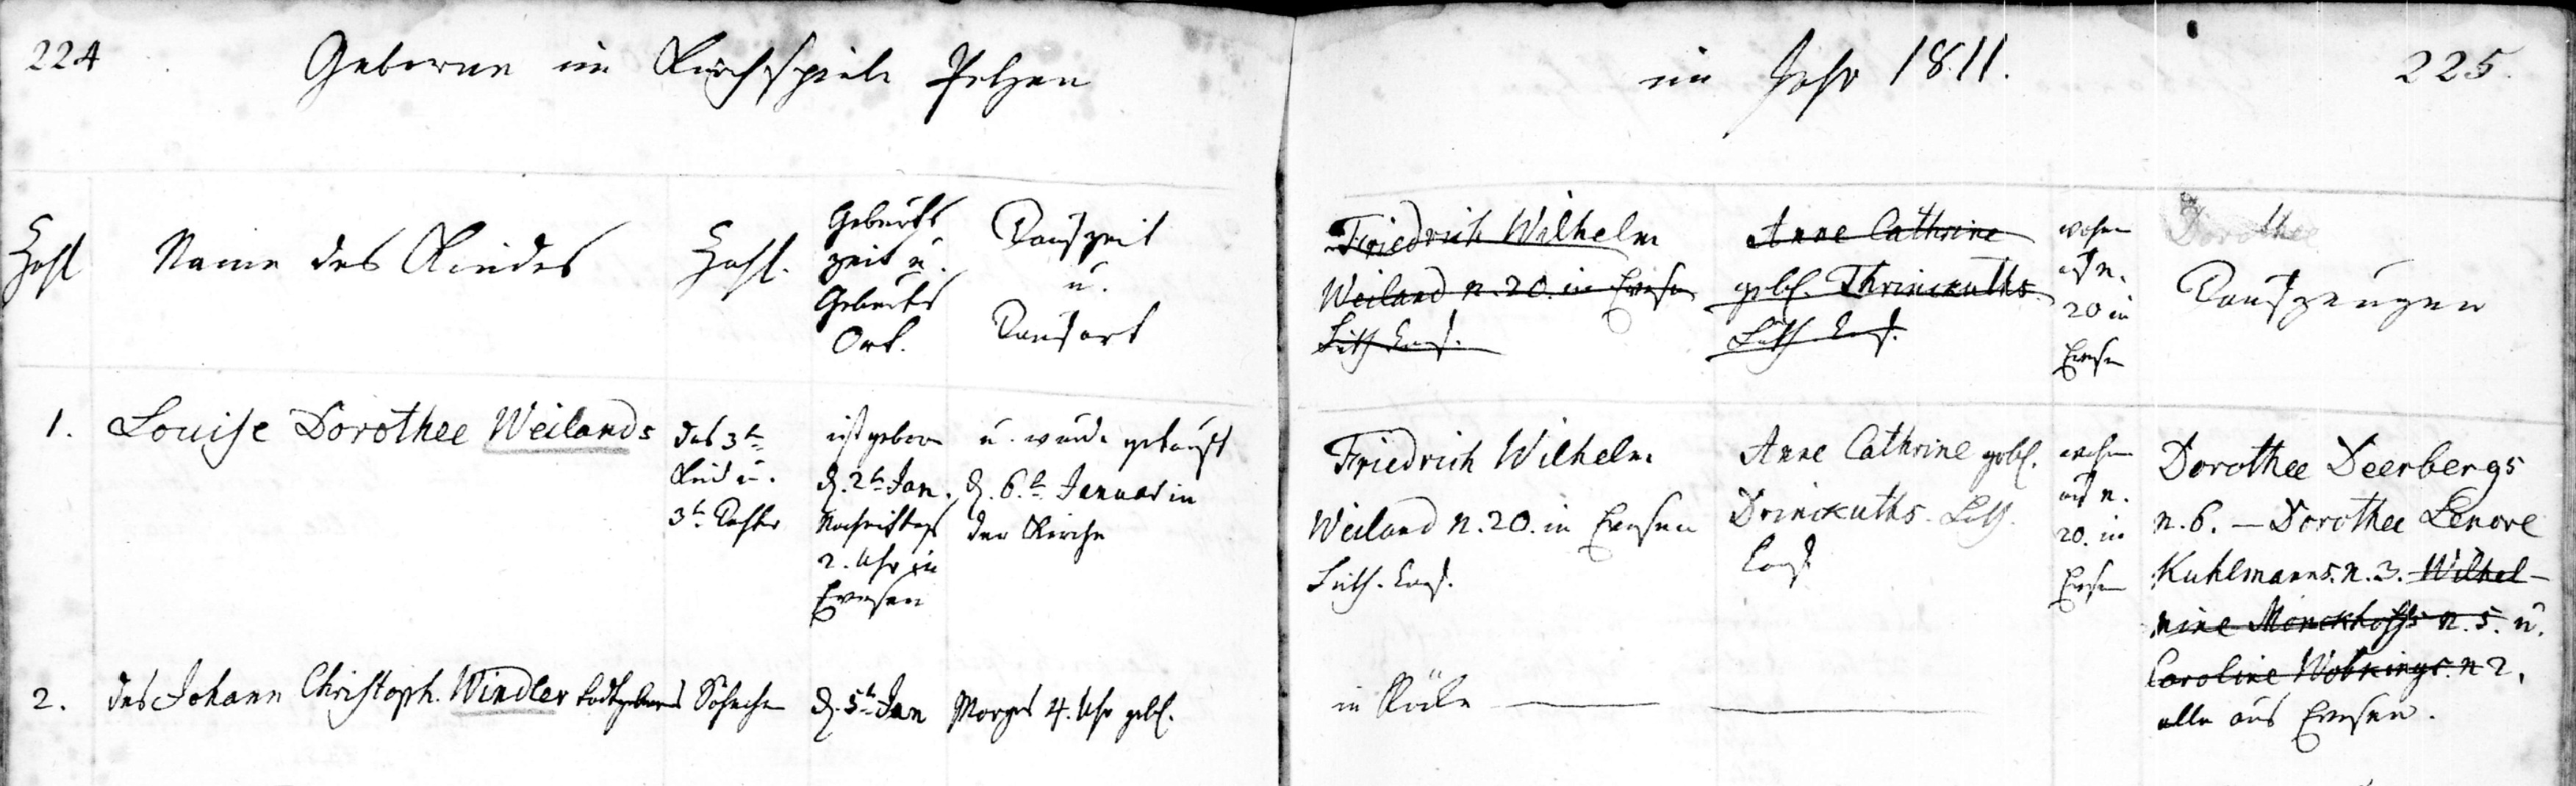 224 Geborne im Kirchspiele Petzen
im Jahr 1811. 225.
Zahl Name des Kindes Zahl. Geburts zeit u. Geburts Ort. Taufzeit u. Taufort
Friedrich Wilhelm Weiland n. 20. in Evesen Luth. Conf.
Anne Cathrine gebh. Thrinckuths Luth Conf.
wohn auf n. 20 in Evesen
Dorothee
Taufzeugen
1. Louise Dorothee Weilands
das 3te
Kind u.
3te Tochter
ist geborn
d. 2te Jan.
Nachmittags
2. Uhr in
Evesen
u. wurde getauft
d. 6.te Januar in
der Kirche
Friedrich Wilhelm
Weiland n. 20. in Evesen
Luth. Conf.
Anne Cathrine gebh.
Drinckuths. Luth.
Conf
wohn
auf n.
20. in
Evesen
Dorothee Deerbergs
n. 6. — Dorothee Lenore
Kuhlmanns. n. 3. Wilhel-
mine Mönckhoffs n. 5. u.
Caroline Wobkings. n 2.
alle aus Evesen.
2. des Johann Christoph. Windler todtgebornes Söhnchen d. 5te Jan Morgens 4. Uhr gebh.
in Röcke